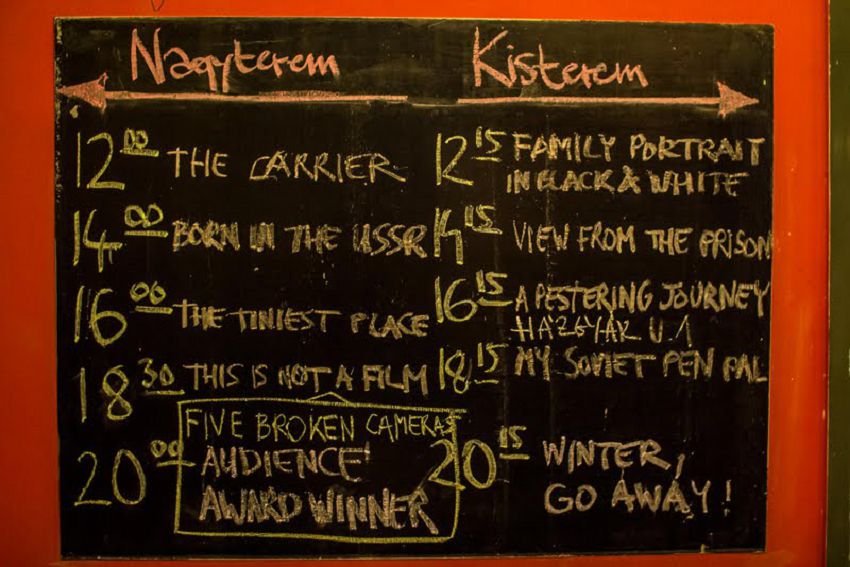 Nagyterem
12 00 THE CARRIER
14 00 BORN IN THE USSR
16 00 THE TINIEST PLACE
18 30 THIS IS NOT A FILM
FIVE BROKEN CAMERAS
20 00 AUDIENCE
AWARD WINNER
Kisterem
12 15 FAMILY PORTRAIT
IN BLACK & WHITE
14 15 VIEW FROM THE PRISON
16 15 A PESTERING JOURNEY
18 15 MY SOVIET PEN PAL
20 15 WINTER,
GO AWAY!